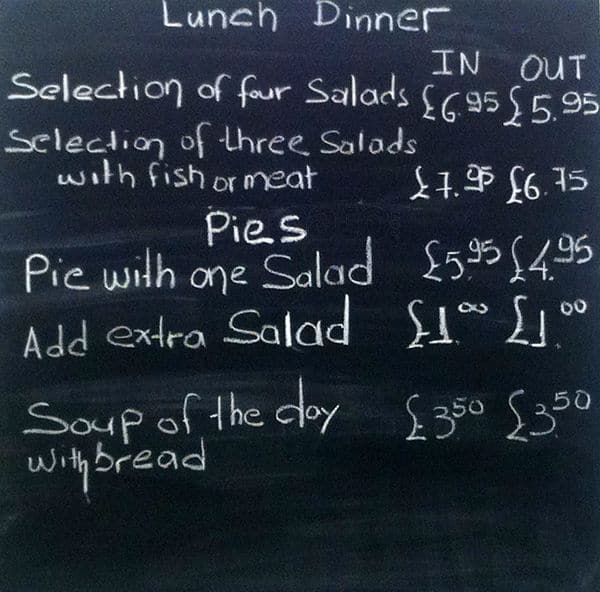 Lunch Dinner
IN OUT
Selection of four Salads £6.95 £5.95
Selection of three Salads
with fish or meat £7.95 £6.75
Pies
Pie with one Salad £5.95 £4.95
Add extra Salad £1.00 £1.00
Soup of the day £3.50 £3.50
with bread